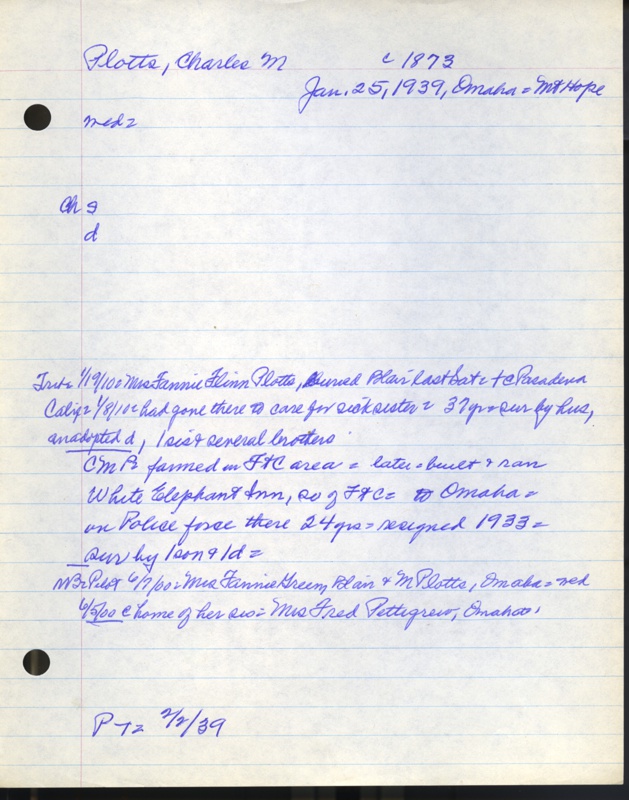 Plotts, Charles M c 1873
Jan. 25, 1939, Omaha = Mt Hope
med =
Ch s
d
Trib = 1/19/10 = Mrs Fannie Flinn Plotts, buried Blair last Sat = Pasadena
Calif = 1/8/10 = had gone there to care for sick sister = 37 yrs = sur by hus,
an adopted d, 1 sis & several brothers
CMP = farmed in FtC area = later = built & ran
White Elephant Inn, so of FtC = to Omaha =
on Police force there 24 yrs = resigned 1933 =
sur by 1 son & 1 d =
Pilot 6/7/00 = Mrs Fannie Green, Blair & M Plotts, Omaha =
6/5/00 @ home of her sis = Mrs Fred Pettegrew, Omaha
P T = 2/2/39